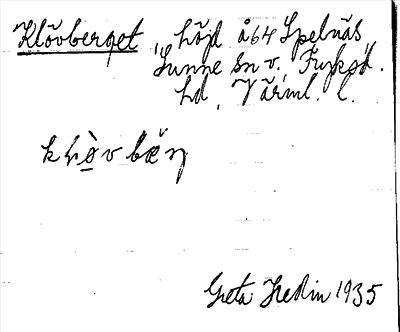 Klövberget, höjd å 64 Spelnäs,
Sunne sn v. Fryksd.
hd, Värml. l.
klø̀vbæ̆ŋ
Greta Hedin 1935